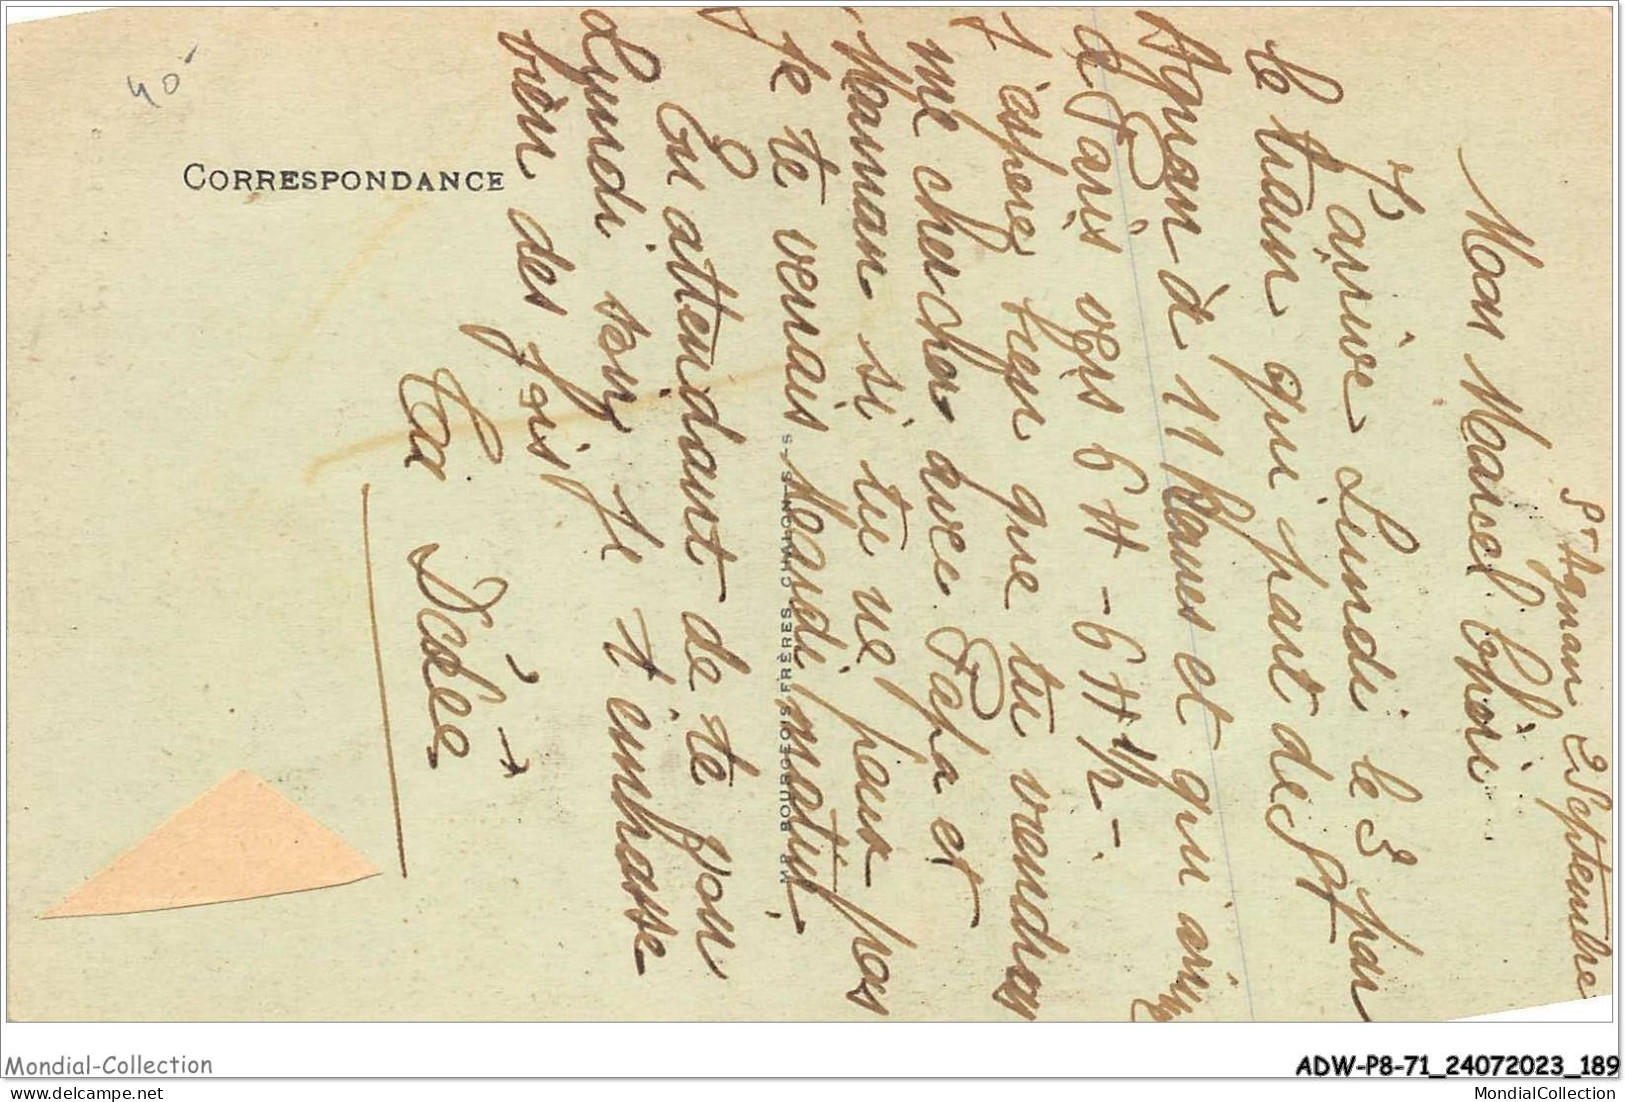 St Agnan 2 Septembre
Mon Marcel Chéri
J'arrive Lundi le 3 par
le train qui part de St
Agnan à 11 Heures et qui arrive
à Paris vers 6 H - 6 H 1/2 -
J'espère bien que tu viendras
me chercher avec Papa et
Maman si tu ne peux pas
je te verrais Mardi matin,
En attendant de te voir
Lundi soir je t'embrasse
bien des fois
Ta Dédée
CORRESPONDANCE
MP. BOURGEOIS FRÈRES, CHALON-S-S
40
Mondial-Collection
ADW-P8-71_24072023_189
MondialCollection